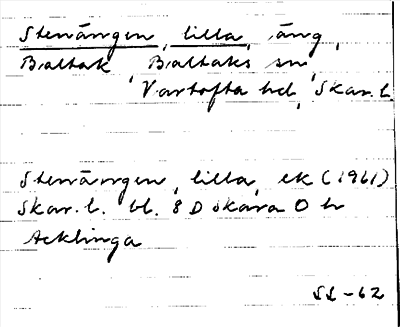 Stenängen, lilla, äng,
Baltak, Baltaks sn,
Vartofta hd, Skar. l.
Stenängen, lilla, ek (1961)
Skar. l. bl. 8 D Skara O h
Acklinga
SL-62